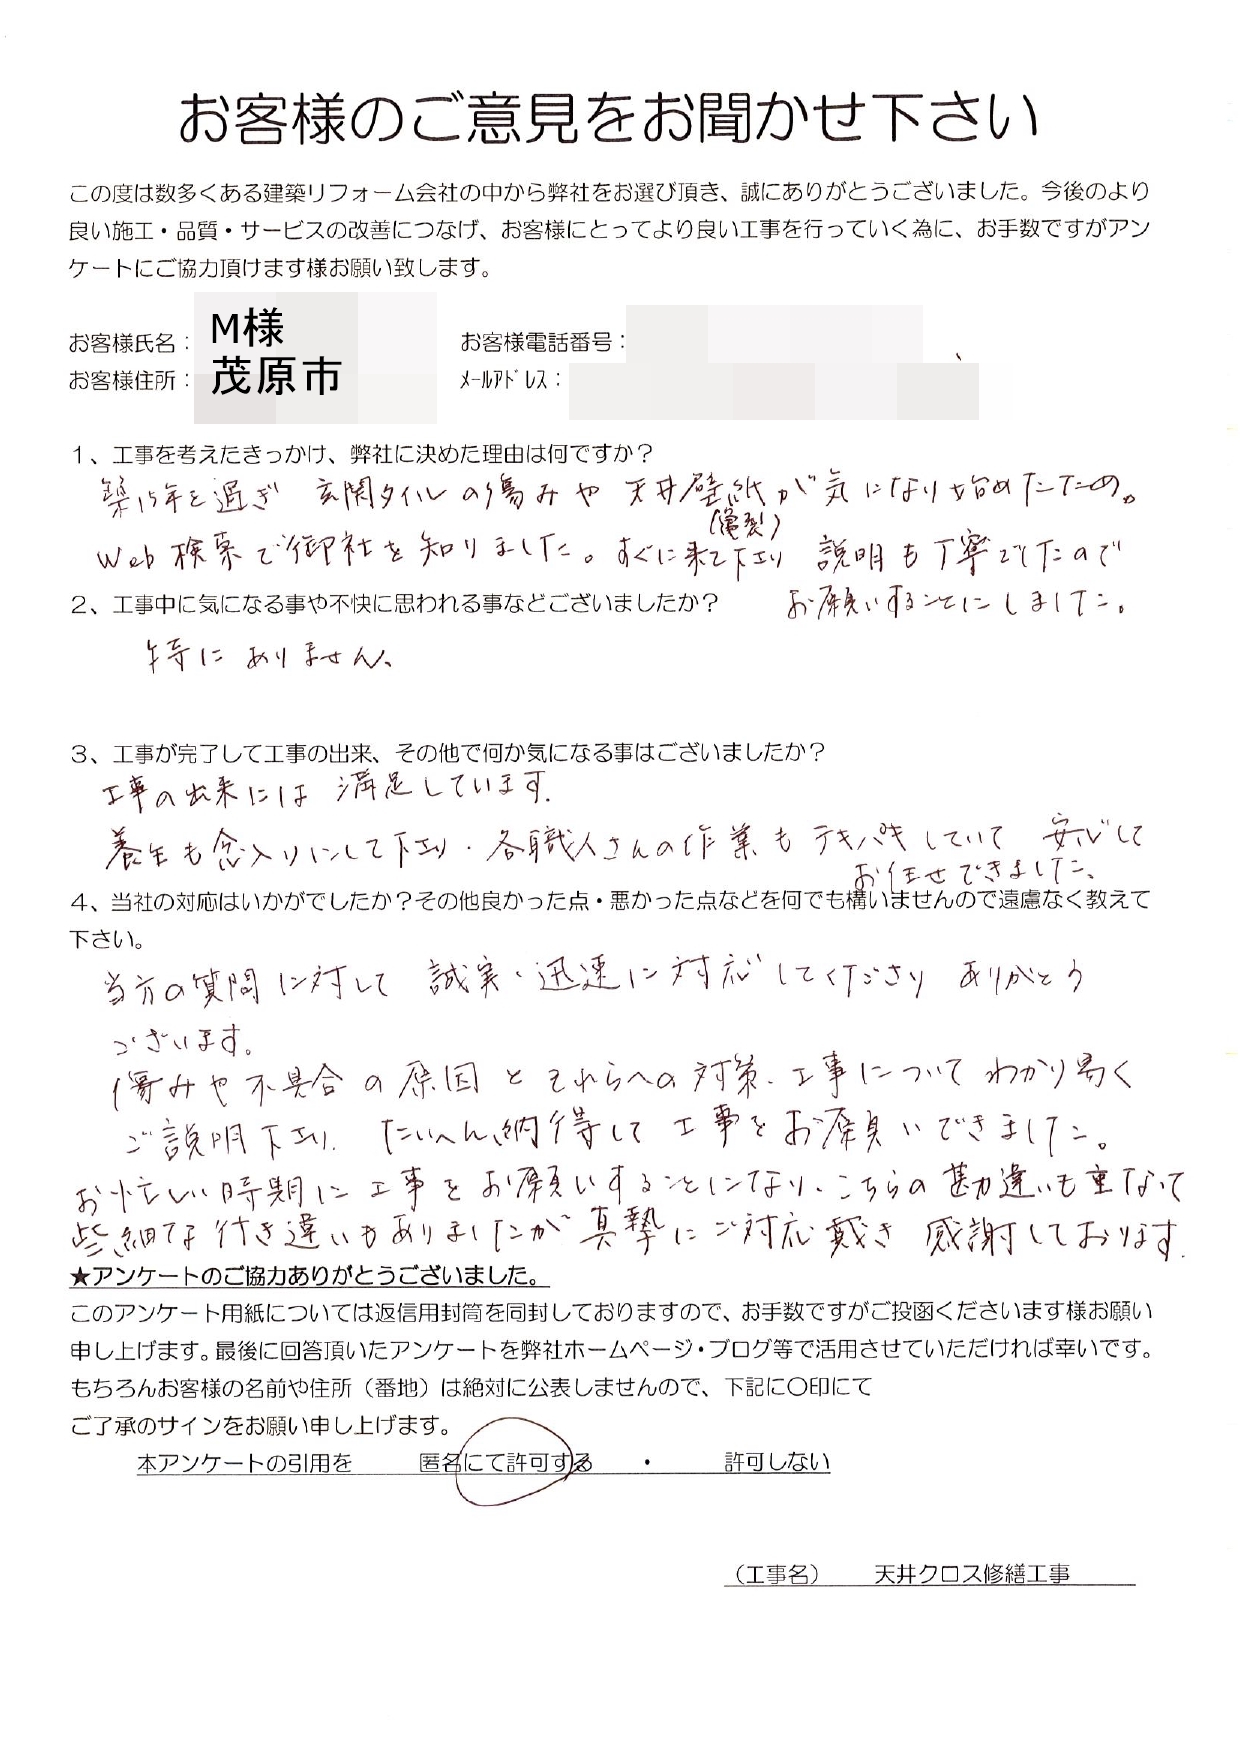 お客様のご意見をお聞かせ下さい
この度は数多くある建築リフォーム会社の中から弊社をお選び頂き、誠にありがとうございました。今後のより
良い施工・品質・サービスの改善につなげ、お客様にとってより良い工事を行っていく為に、お手数ですがアン
ケートにご協力頂けます様お願い致します。
お客様氏名： M様 お客様電話番号：
お客様住所： 茂原市 ﾒｰﾙｱﾄﾞﾚｽ：
１、工事を考えたきっかけ、弊社に決めた理由は何ですか？
築15年を過ぎ 玄関タイルの傷みや 天井壁紙が気になり始めたため。
(亀裂)
Web検索で御社を知りました。すぐに来て下さり 説明も丁寧でしたので
お願いすることにしました。
２、工事中に気になる事や不快に思われる事などございましたか？
特にありません。
３、工事が完了して工事の出来、その他で何か気になる事はございましたか？
工事の出来には満足しています。
養生も念入りにして下さり、各職人さんの作業もテキパキしていて 安心して
お任せできました。
４、当社の対応はいかがでしたか？その他良かった点・悪かった点などを何でも構いませんので遠慮なく教えて
下さい。
当方の質問に対して 誠実・迅速に対応してくださり ありがとう
ございます。
傷みや不具合の原因とそれらへの対策、工事についてわかり易く
ご説明下さり、たいへん納得して工事をお願いできました。
お忙しい時期に工事をお願いすることになり、こちらの勘違いも重なって
些細な行き違いもありましたが真摯にご対応戴き 感謝しております。
★アンケートのご協力ありがとうございました。
このアンケート用紙については返信用封筒を同封しておりますので、お手数ですがご投函くださいます様お願い
申し上げます。最後に回答頂いたアンケートを弊社ホームページ・ブログ等で活用させていただければ幸いです。
もちろんお客様の名前や住所（番地）は絶対に公表しませんので、下記に〇印にて
ご了承のサインをお願い申し上げます。
本アンケートの引用を 匿名にて許可する ・ 許可しない
（工事名） 天井クロス修繕工事